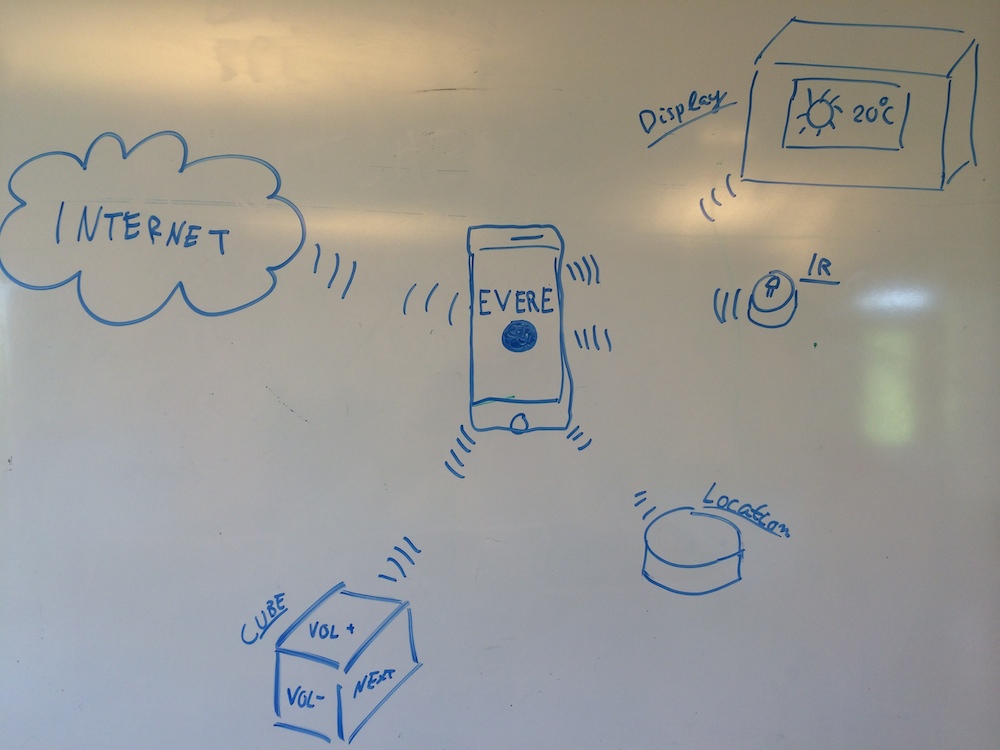 Display
20°C
INTERNET
IR
EVERE
Location
CUBE
VOL +
VOL-
NEXT